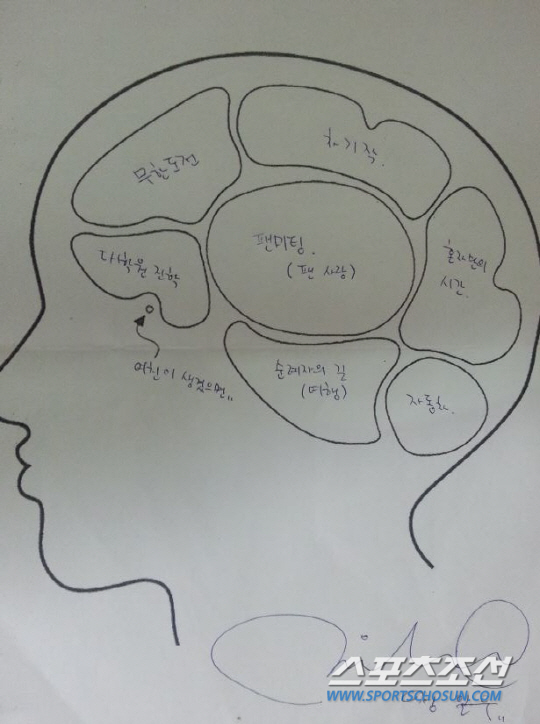 무한도전
차기작.
팬미팅.
(팬 사랑)
혼자만의
시간.
대학원 진학
여친이 생겼으면,,
순례자의 길
(여행)
자동차.
스포츠조선
WWW.SPORTSCHOSUN.COM